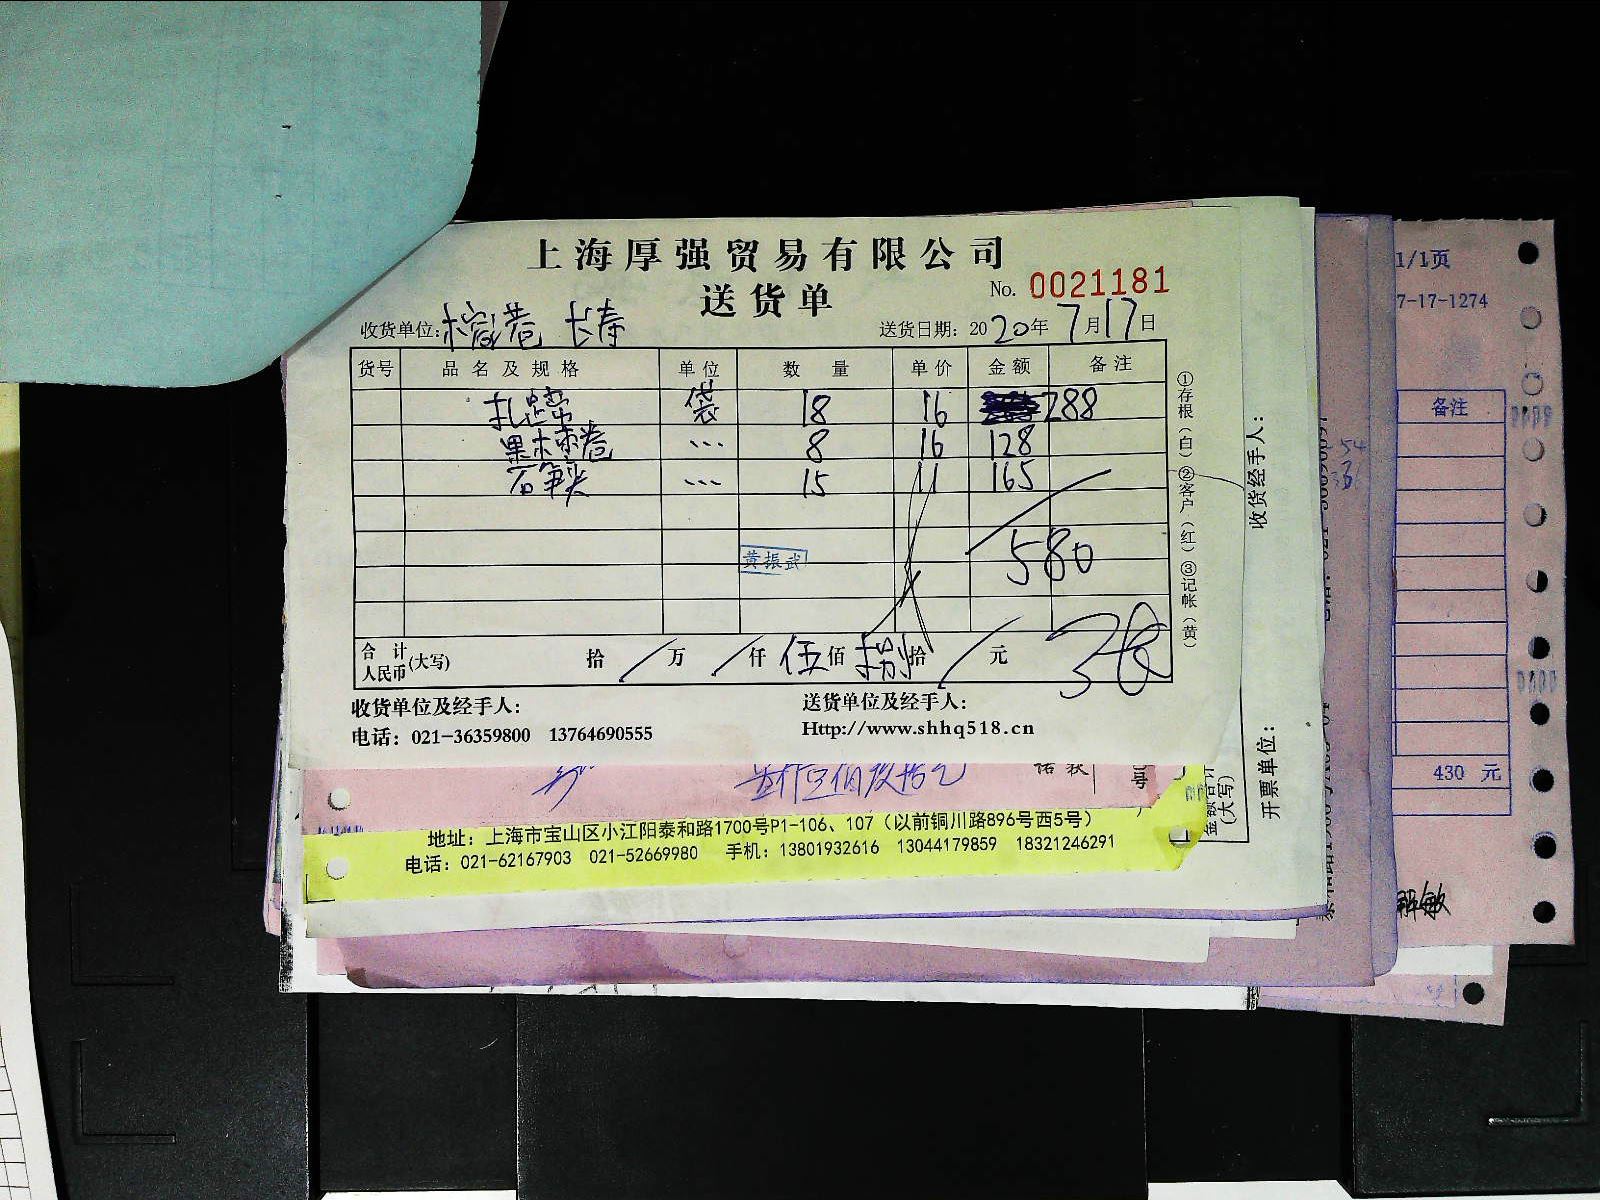 上海厚强贸易有限公司
送货单
No. 0021181
收货单位: 长寿
送货日期: 2020年7月17日
货号 品名及规格 单位 数量 单价 金额 备注
袋 18 16 288
8 16 128
石笋尖 15 11 165
黄振武
580
合计人民币(大写) 拾 / 万 / 仟 伍佰 捌拾 / 元
收货单位及经手人:
送货单位及经手人:
电话: 021-36359800 13764690555
Http://www.shhq518.cn
①存根(白) ②客户(红) ③记帐(黄)
收货经手人:
开票单位:
(大写)
地址: 上海市宝山区小江阳泰和路1700号P1-106、107 (以前铜川路896号西5号)
电话: 021-62167903 021-52669980 手机: 13801932616 13044179859 18321246291
1/1页
7-17-1274
备注
430 元
敏